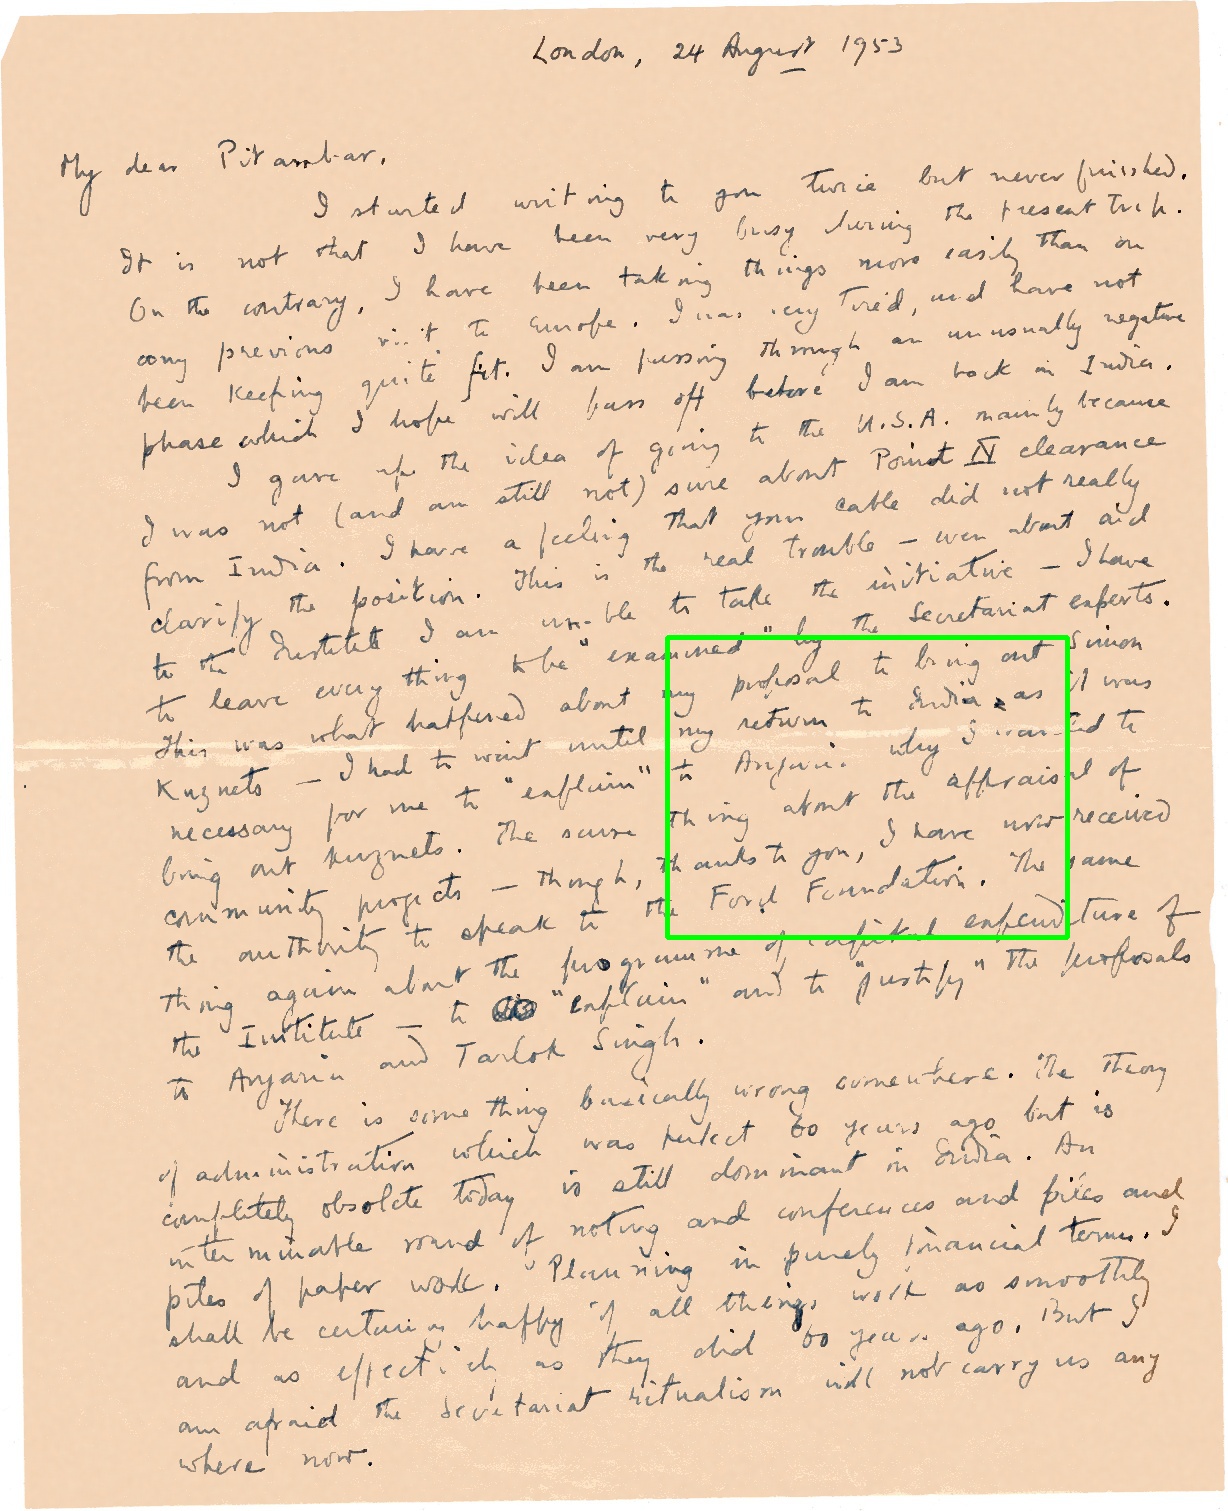 London, 24 August 1953
My dear Pitambar,
I started writing to you twice but never finished.
It is not that I have been very busy during the present trip.
On the contrary, I have been taking things more easily than on
any previous visit to Europe. I was very tired, and have not
been keeping quite fit. I am passing through an unusually negative
phase which I hope will pass off before I am back in India.
I gave up the idea of going to the U.S.A. mainly because
I was not (and am still not) sure about Point IV clearance
from India. I have a feeling that your cable did not really
clarify the position. This is the real trouble – even about aid
to the Institute I am unable to take the initiative – I have
to leave every thing to be "examined" by the Secretariat experts.
This was what happened about my proposal to bring out Simon
Kuznets – I had to wait until my return to India as it was
necessary for me to "explain" to Anjaria why I wanted to
bring out Kuznets. The same thing about the appraisal of
community projects – though, thanks to you, I have now received
the authority to speak to the Ford Foundation. The same
thing again about the programme of capital expenditure of
the Institute – to "explain" and to "justify" the proposals
to Anjaria and Tarlok Singh.
There is some thing basically wrong somewhere. The theory
of administration which was perfect 60 years ago but is
completely obsolete today is still dominant in India. An
interminable round of noting and conferences and files and
piles of paper work. Planning in purely financial terms. I
shall be certainly happy if all things work as smoothly
and as effectively as they did 60 years ago. But I
am afraid the Secretariat ritualism will not carry us any
where now.